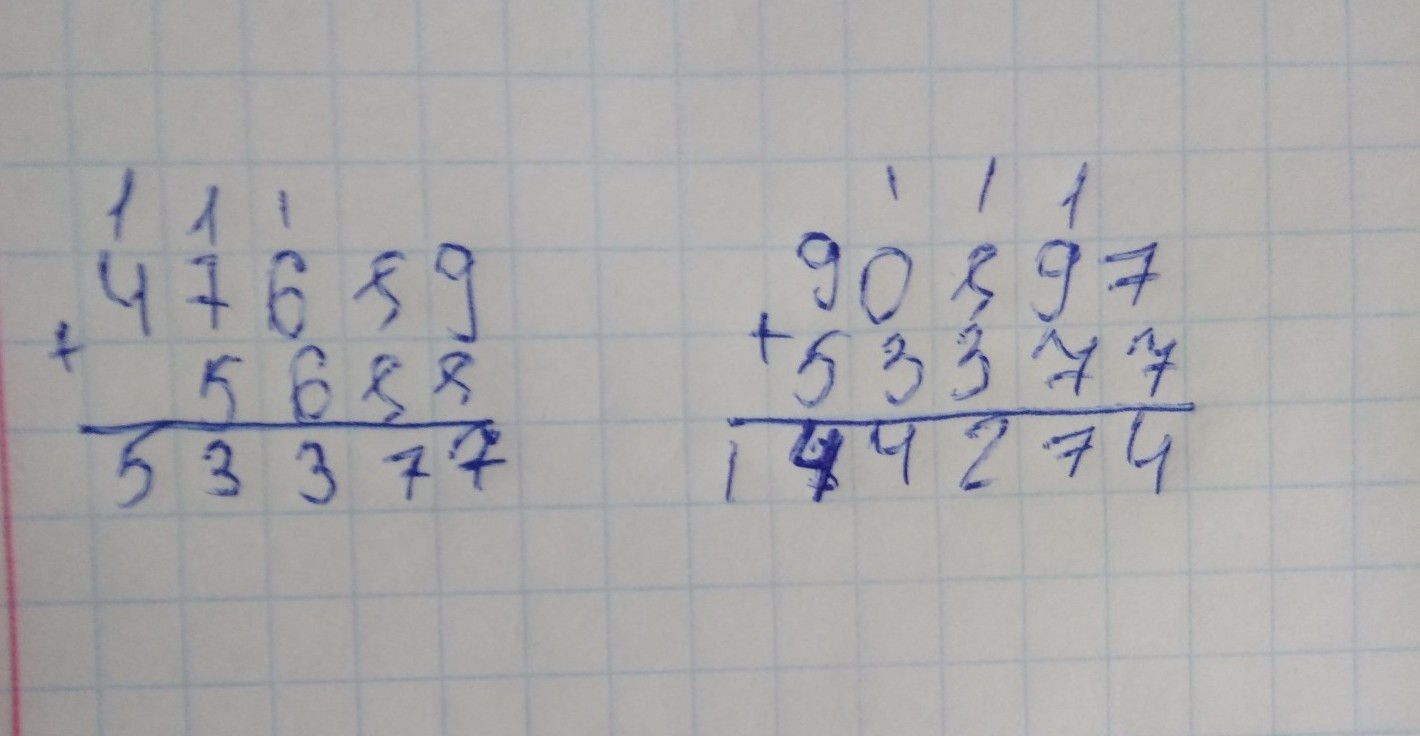 1 1 1
47689
+
5688
53377
1 1 1
90897
+ 53377
144274